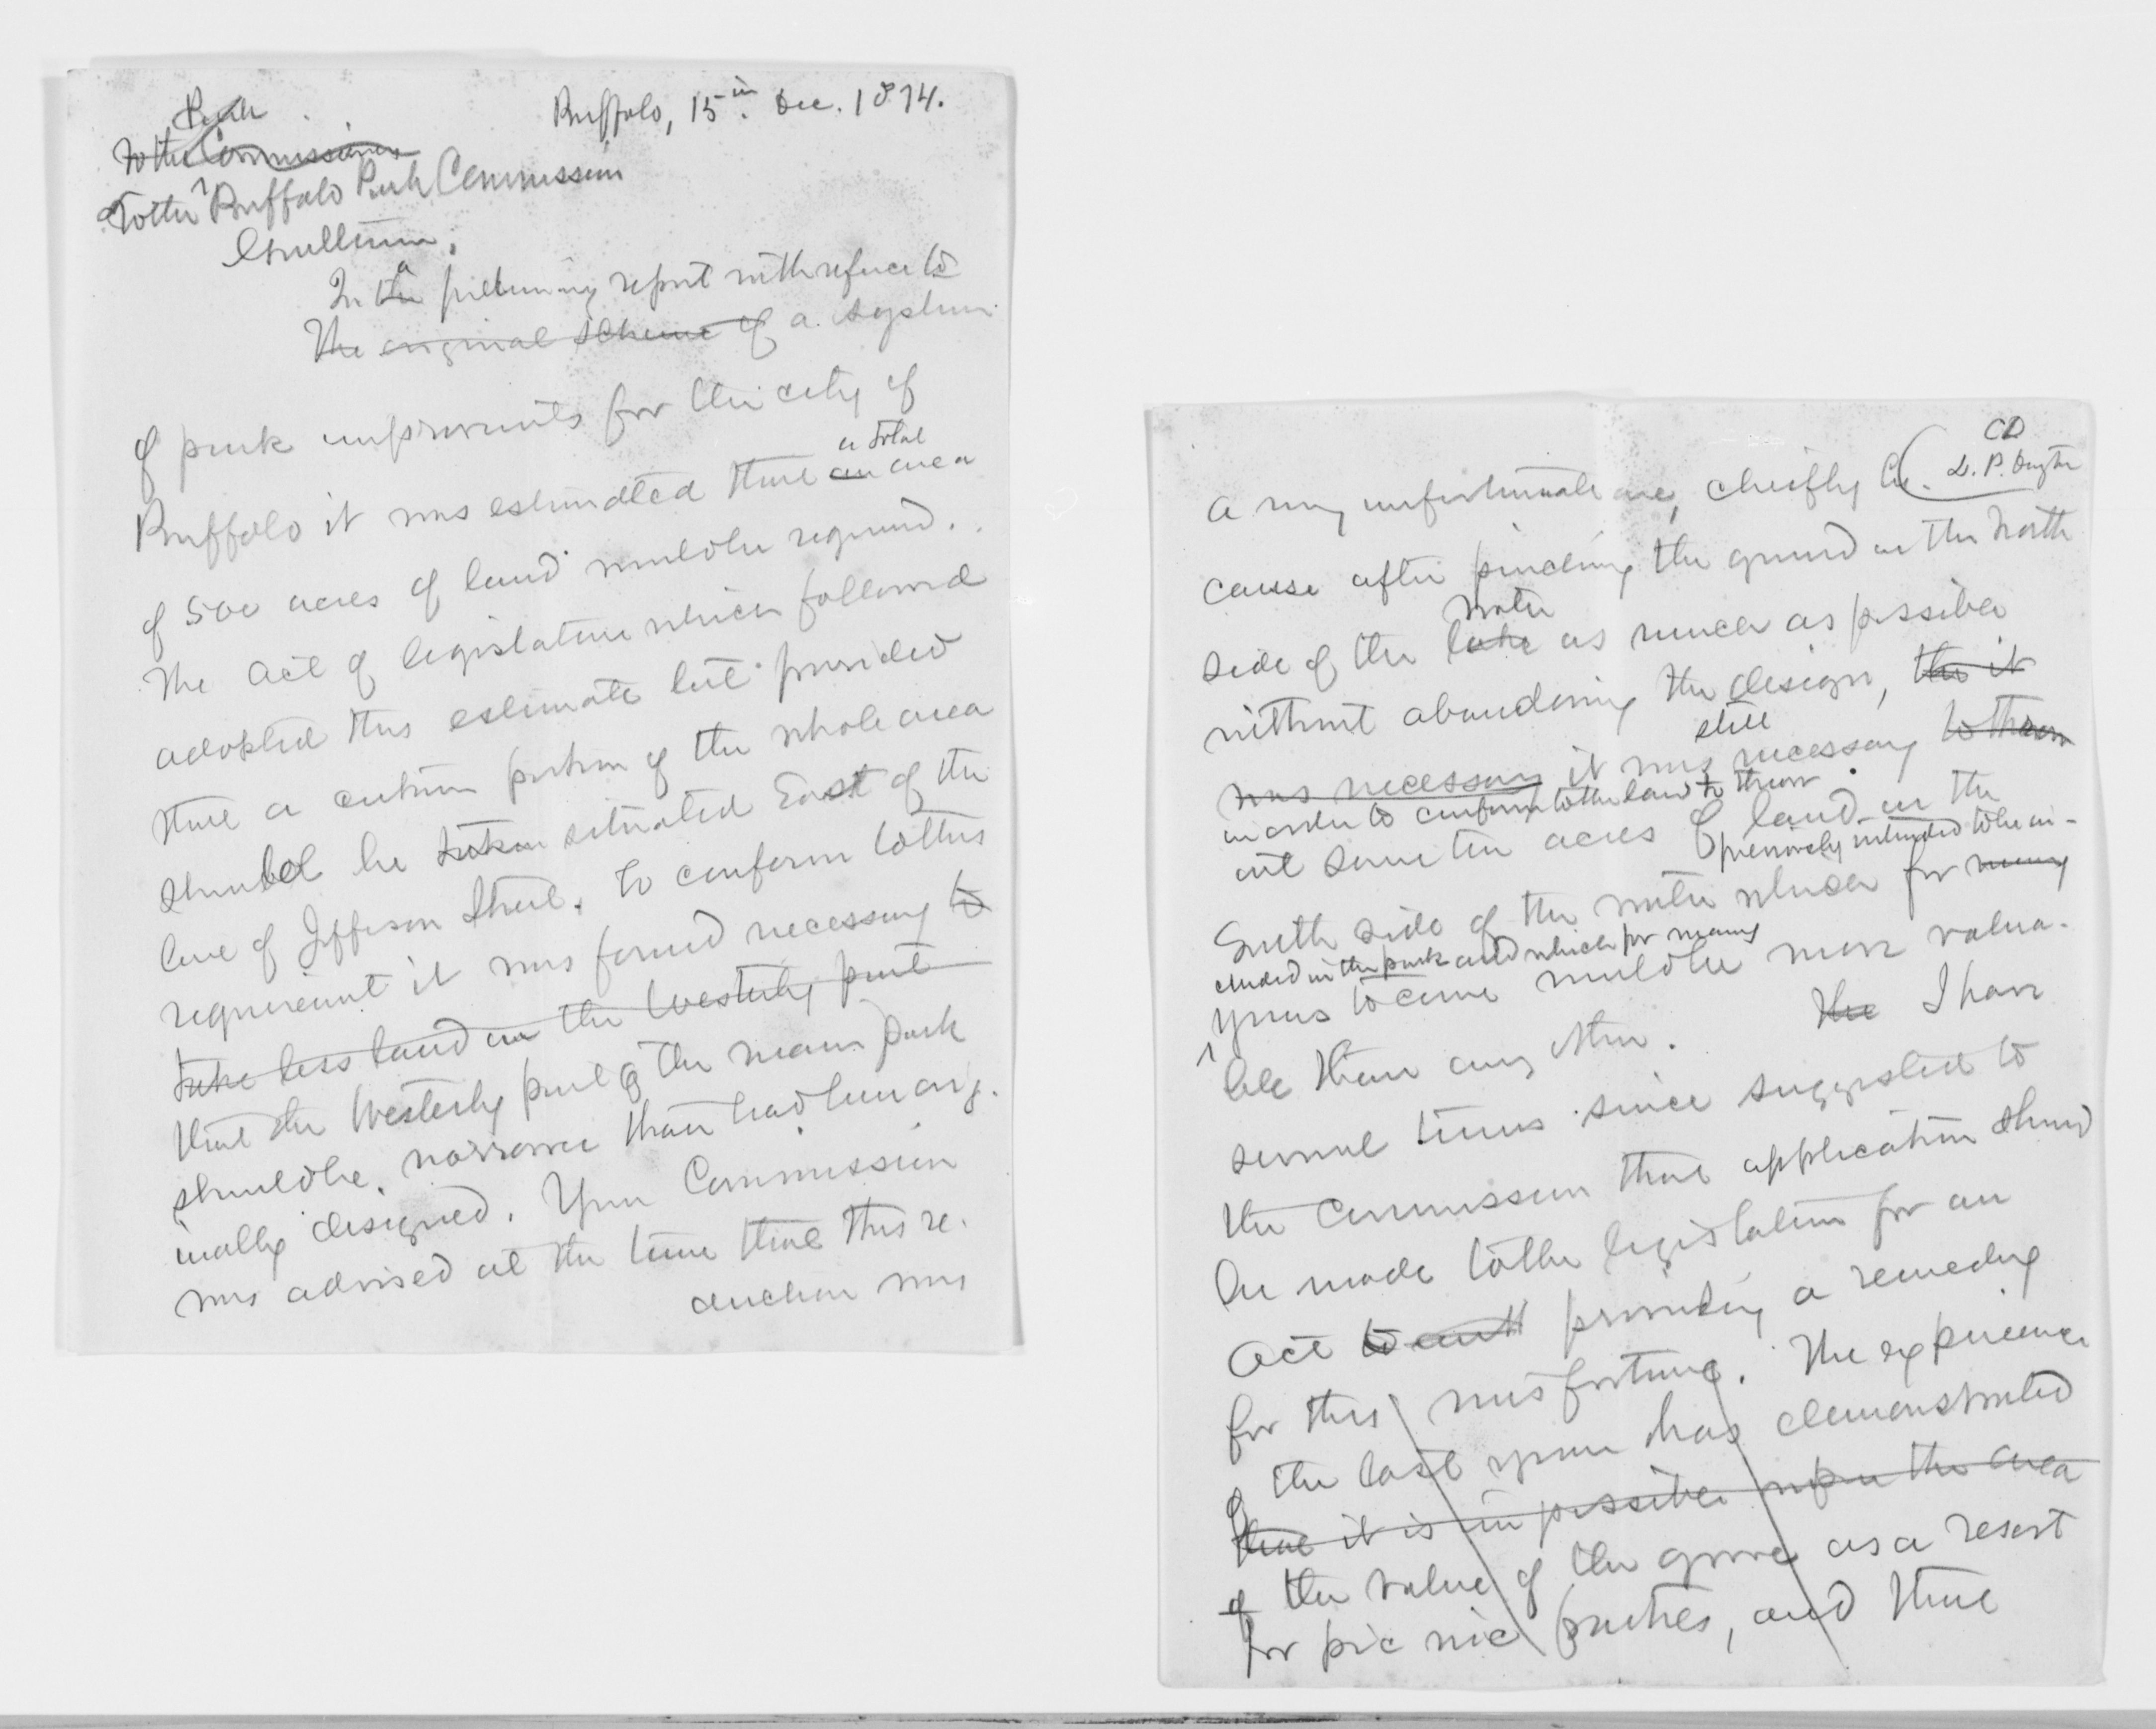 Buffalo, 15th Dec. 1874.
Park
To the Commissioners
To the Buffalo Park Commission
Gentlemen;
In the a preliminary report with reference to
The original scheme of a system
of park improvements for the city of
a total
Buffalo it was estimated that an area
of 500 acres of land would be required.
The act of legislature which followed
adopted this estimate but provided
that a certain portion of the whole area
should be taken situated East of the
line of Jefferson Street. To conform to this
requirement it was found necessary to
take less land in the Westerly part
that the Westerly part of the main park
should be narrower than had been orig-
inally designed. Your Commission
was advised at the time that this re-
duction was
CD
a very unfortunate one, chiefly be- D. P.
cause after pinching the ground on the North
water
side of the lake as much as possible
without abandoning the design, tho it
still
was necessary it was necessary to throw
in order to conform to the law to throw
out some ten acres of land on the
previously intended to be in-
South side of the water which for many
cluded in the park and which for many
years to come would be more valua-
ble than any other. The I have
several times since suggested to
the Commission that application should
be made to the legislature for an
act to providing a remedy
for this misfortune. The experience
of the last year has demonstrated
that it is impossible upon the area
of the value of the grove as a resort
for pic nic parties, and that